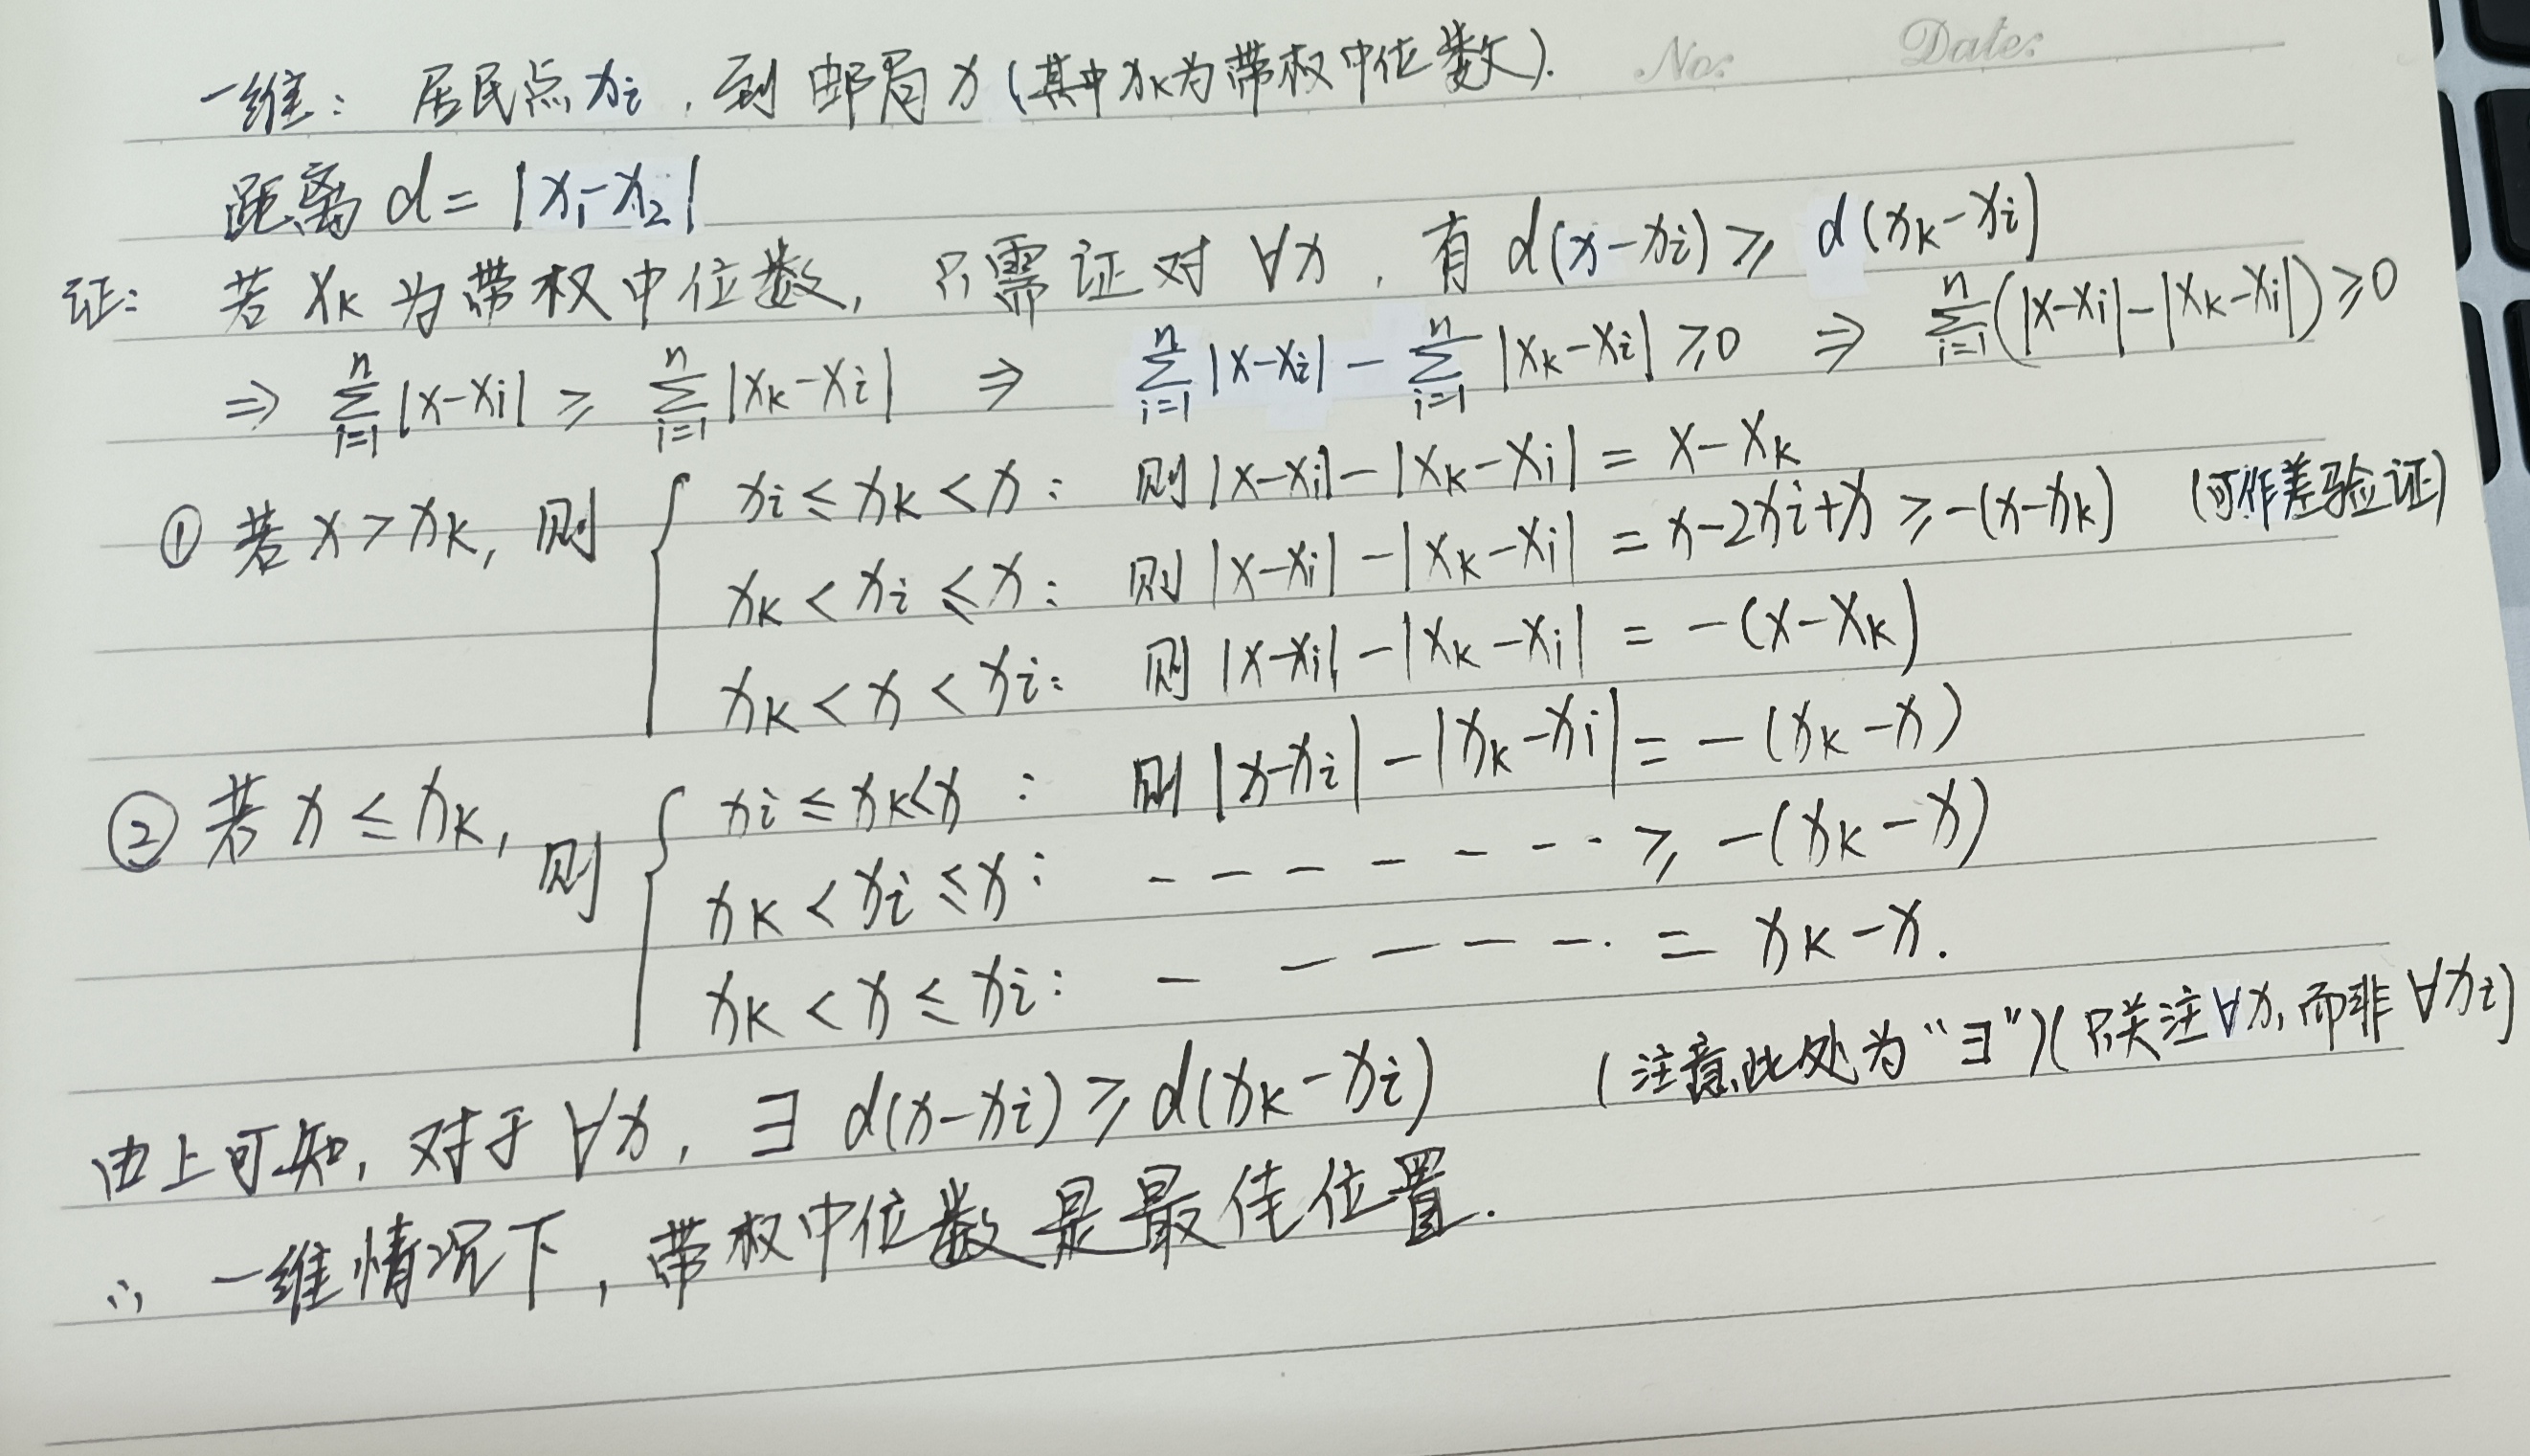 No: Date:
一维: 居民点xi, 到邮局x(其中xk为带权中位数).
距离 d = |x1-x2|
证: 若 xk 为带权中位数, 只需证对 ∀x, 有 d(x-xi) ≥ d(xk-xi)
⇒ ∑_{i=1}^{n} |x-xi| ≥ ∑_{i=1}^{n} |xk-xi| ⇒ ∑_{i=1}^{n} |x-xi| - ∑_{i=1}^{n} |xk-xi| ≥0 ⇒ ∑_{i=1}^{n} (|x-xi|-|xk-xi|) ≥0
① 若 x > xk, 则 { xi ≤ xk < x: 则 |x-xi|-|xk-xi| = x-xk
xk < xi ≤ x: 则 |x-xi|-|xk-xi| = x-2xi+x ≥ -(x-xk) (可作差验证)
xk < x < xi: 则 |x-xi|-|xk-xi| = -(x-xk)
② 若 x ≤ xk, 则 { xi ≤ xk < x : 则 |x-xi|-|xk-xi| = -(xk-x)
xk < xi ≤ x: - - - - - - - ≥ -(xk-x)
xk < x ≤ xi: - - - - - - = xk-x.
由上可知, 对于 ∀x, ∃ d(x-xi) ≥ d(xk-xi) (注意此处为“∃”)(只关注∀x, 而非∀xi)
∴ 一维情况下, 带权中位数是最佳位置.